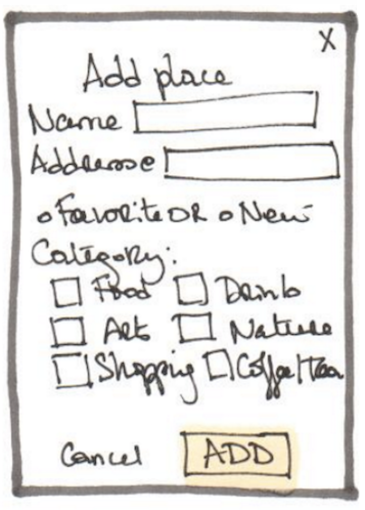 X
Add place
Name
Addresse
o Favorite OR o New
Category:
Food Drinks
Art Nature
Shopping Coffee/Tea
Cancel ADD